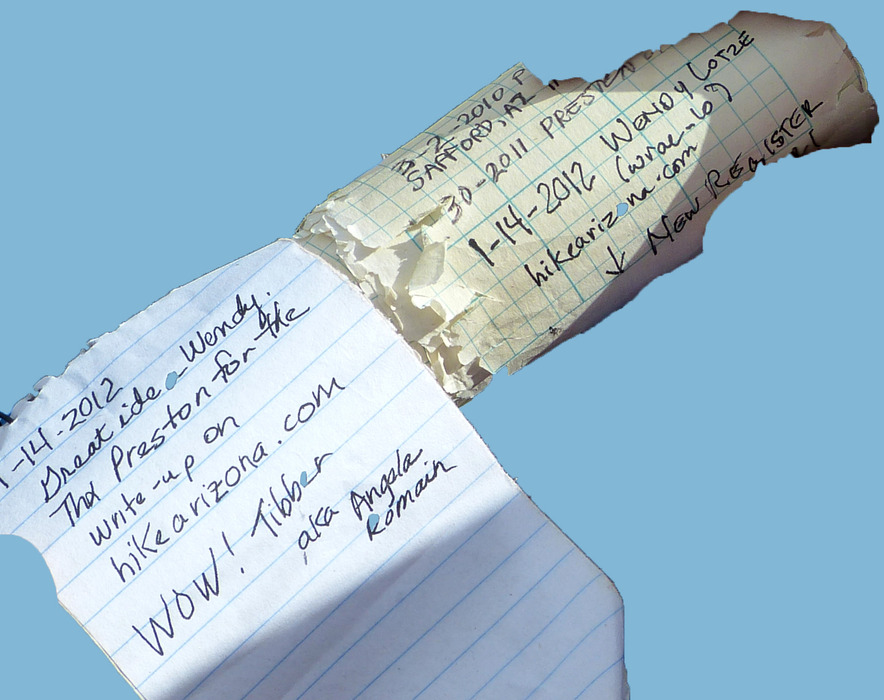 3-2-2010
SAFFORD, AZ
30-2011 PRESTON
1-14-2012 WENDY LOTZE
(wrae-log)
hikearizona.com
↓ NEW REGISTER
1-14-2012
Great idea - Wendy.
Thx Preston for the
write-up on
hikearizona.com
WOW! Tibber
aka Angela
Romain